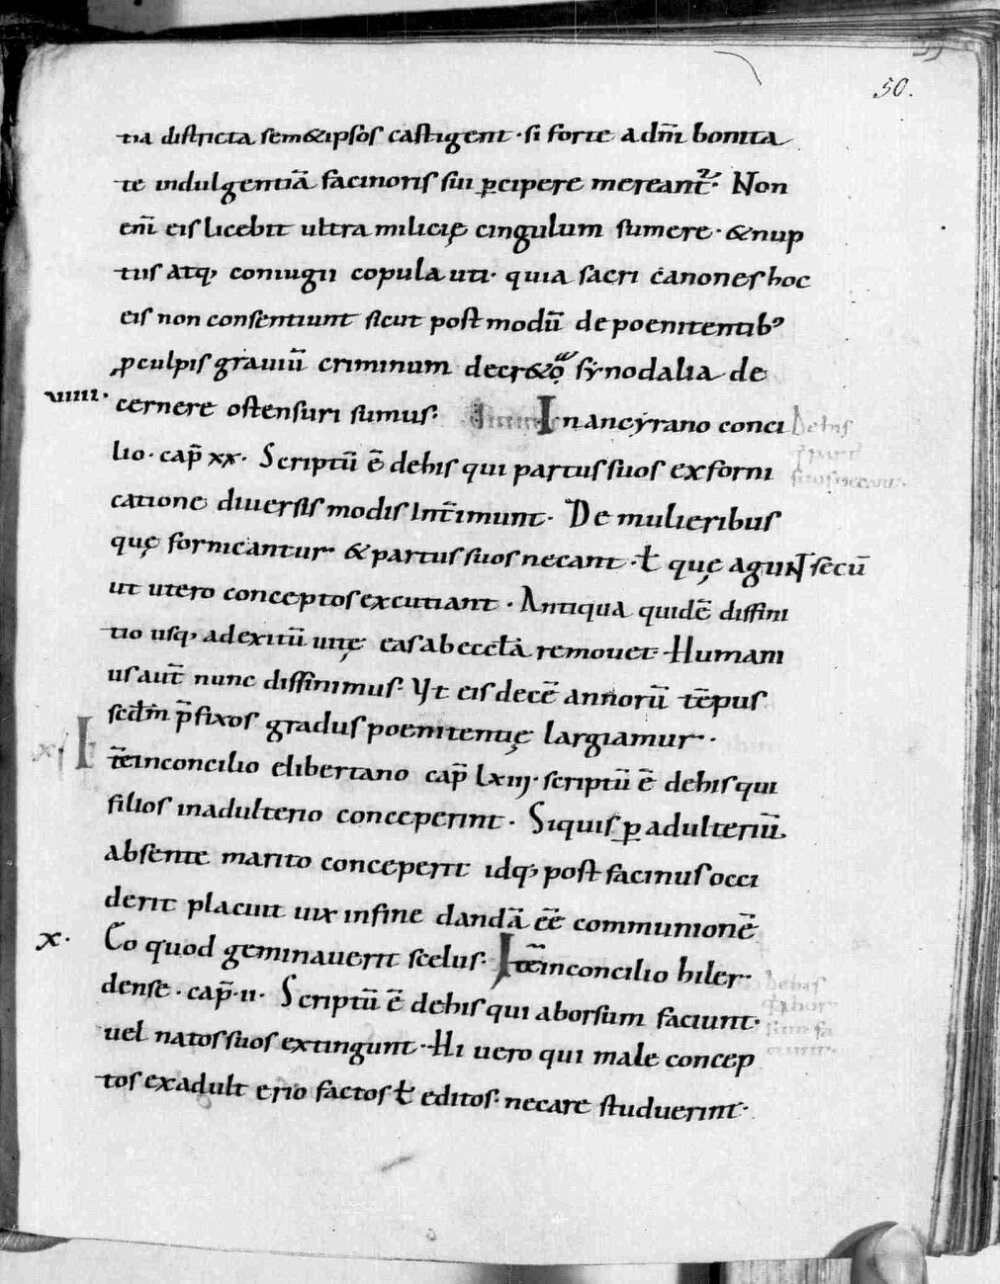 50.
tia districta sem&ipsos castigent · si forte a dm̄ bonita
te indulgentiā facinoris sui ꝑcipere mereant᷑· Non
enī eis licebit ultra milicię cingulum sumere · &nup
tus atq; coniugii copula uti · quia sacri canones hoc
eis non consentiunt sicut post modū de poenitentib;
ꝓculpis graviū criminum decr&a synodalia de
viiii· cernere ostensuri sumus· In ancyrano conci
lio · cap̄ xx· Scriptū ē dehis qui partus suos ex forni
catione diversis modis intīmunt· De mulieribus
quę fornicantur & partus suos necant · ł quę agunt secū
ut utero conceptos excutiant · Antiqua quidē diffini
tio usq; ad exitū vitę eas ab eccłā removet· Humani
us aūt nunc diffinimus· Ut eis decē annorū tēpus
scdm̄ p̄fixos gradus poenitentię largiamur·
Itē inconcilio elibertano cap̄ lxiij· scriptū ē dehis qui
filios inadulterio conceperint · Siquis ꝑ adulteriū
absente marito conceperit idq; post facinus occi
derit placuit vix infine dandā eē communionē
x· Eo quod geminaverit scelus· Itē inconcilio hiler
dense · cap̄ ·ii· Scriptū ē dehis qui aborsum faciunt·
vel natos suos extingunt· Hi vero qui male concep
tos ex adulterio factos ł editos· necare studuerint·